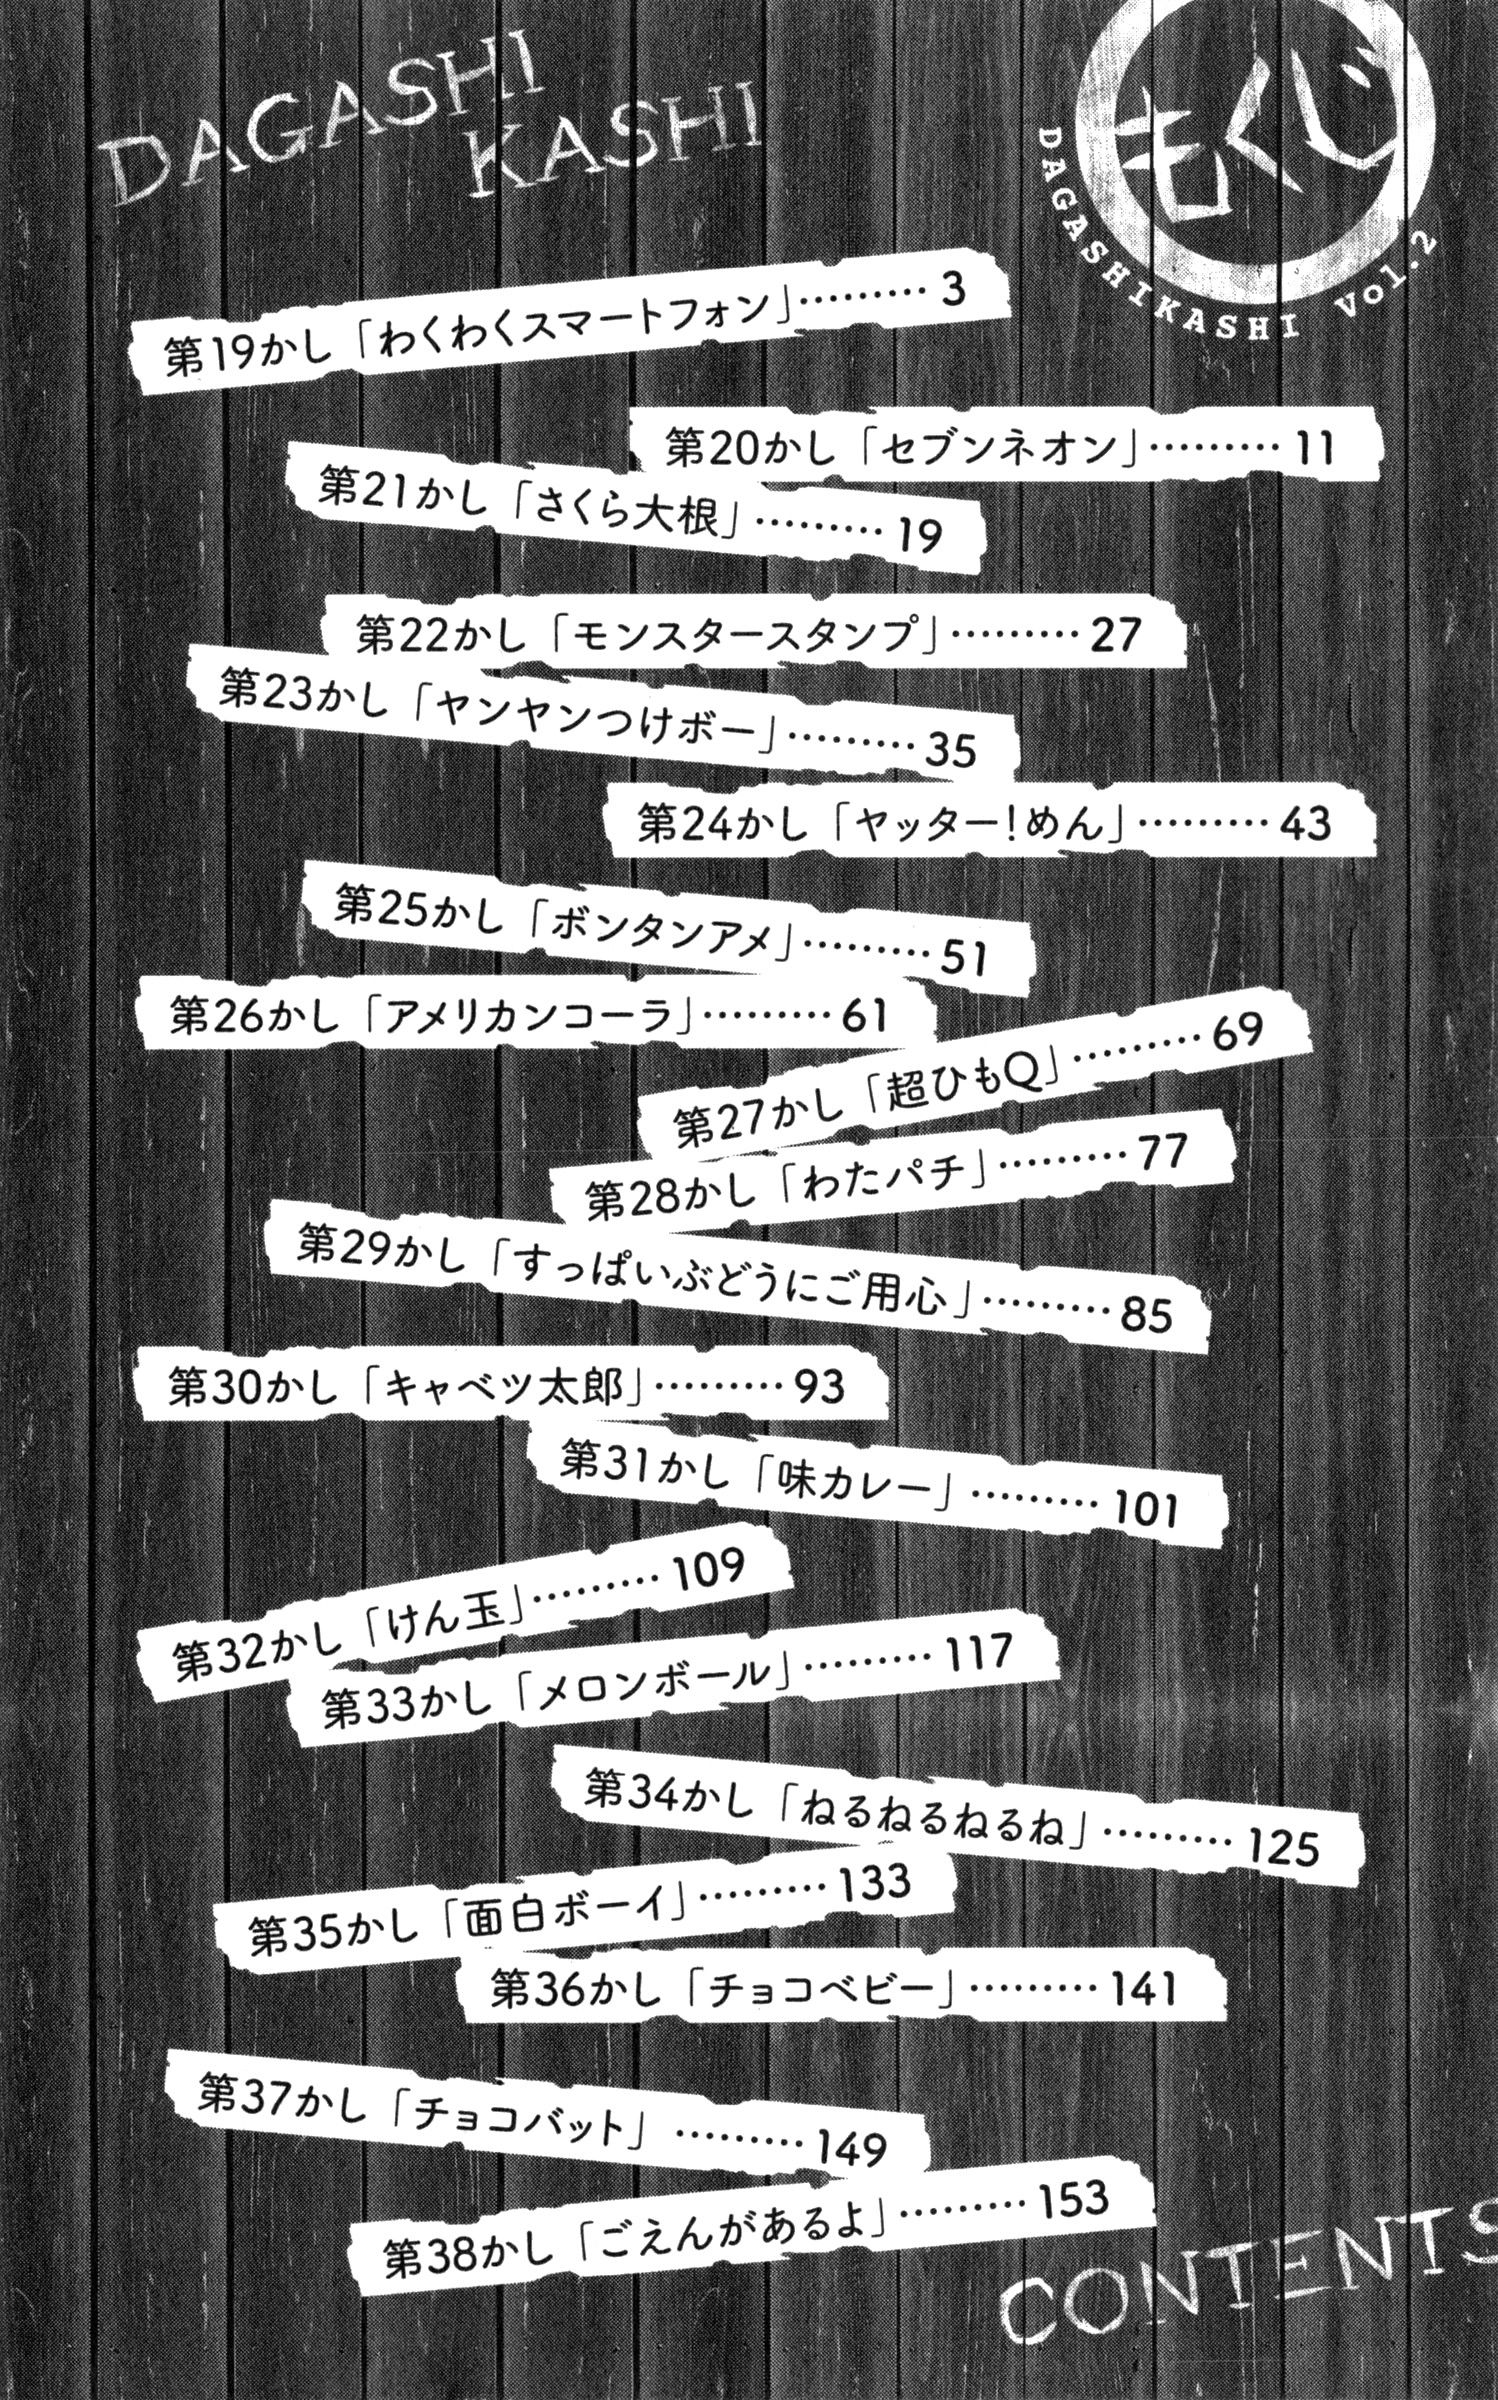 DAGASHI
KASHI
もくじ
DAGASHIKASHI Vol.2
第19かし「わくわくスマートフォン」………3
第20かし「セブンネオン」………11
第21かし「さくら大根」………19
第22かし「モンスタースタンプ」………27
第23かし「ヤンヤンつけボー」………35
第24かし「ヤッター!めん」………43
第25かし「ボンタンアメ」………51
第26かし「アメリカンコーラ」………61
第27かし「超ひもQ」………69
第28かし「わたパチ」………77
第29かし「すっぱいぶどうにご用心」………85
第30かし「キャベツ太郎」………93
第31かし「味カレー」………101
第32かし「けん玉」………109
第33かし「メロンボール」………117
第34かし「ねるねるねるね」………125
第35かし「面白ボーイ」………133
第36かし「チョコベビー」………141
第37かし「チョコバット」………149
第38かし「ごえんがあるよ」………153
CONTENTS